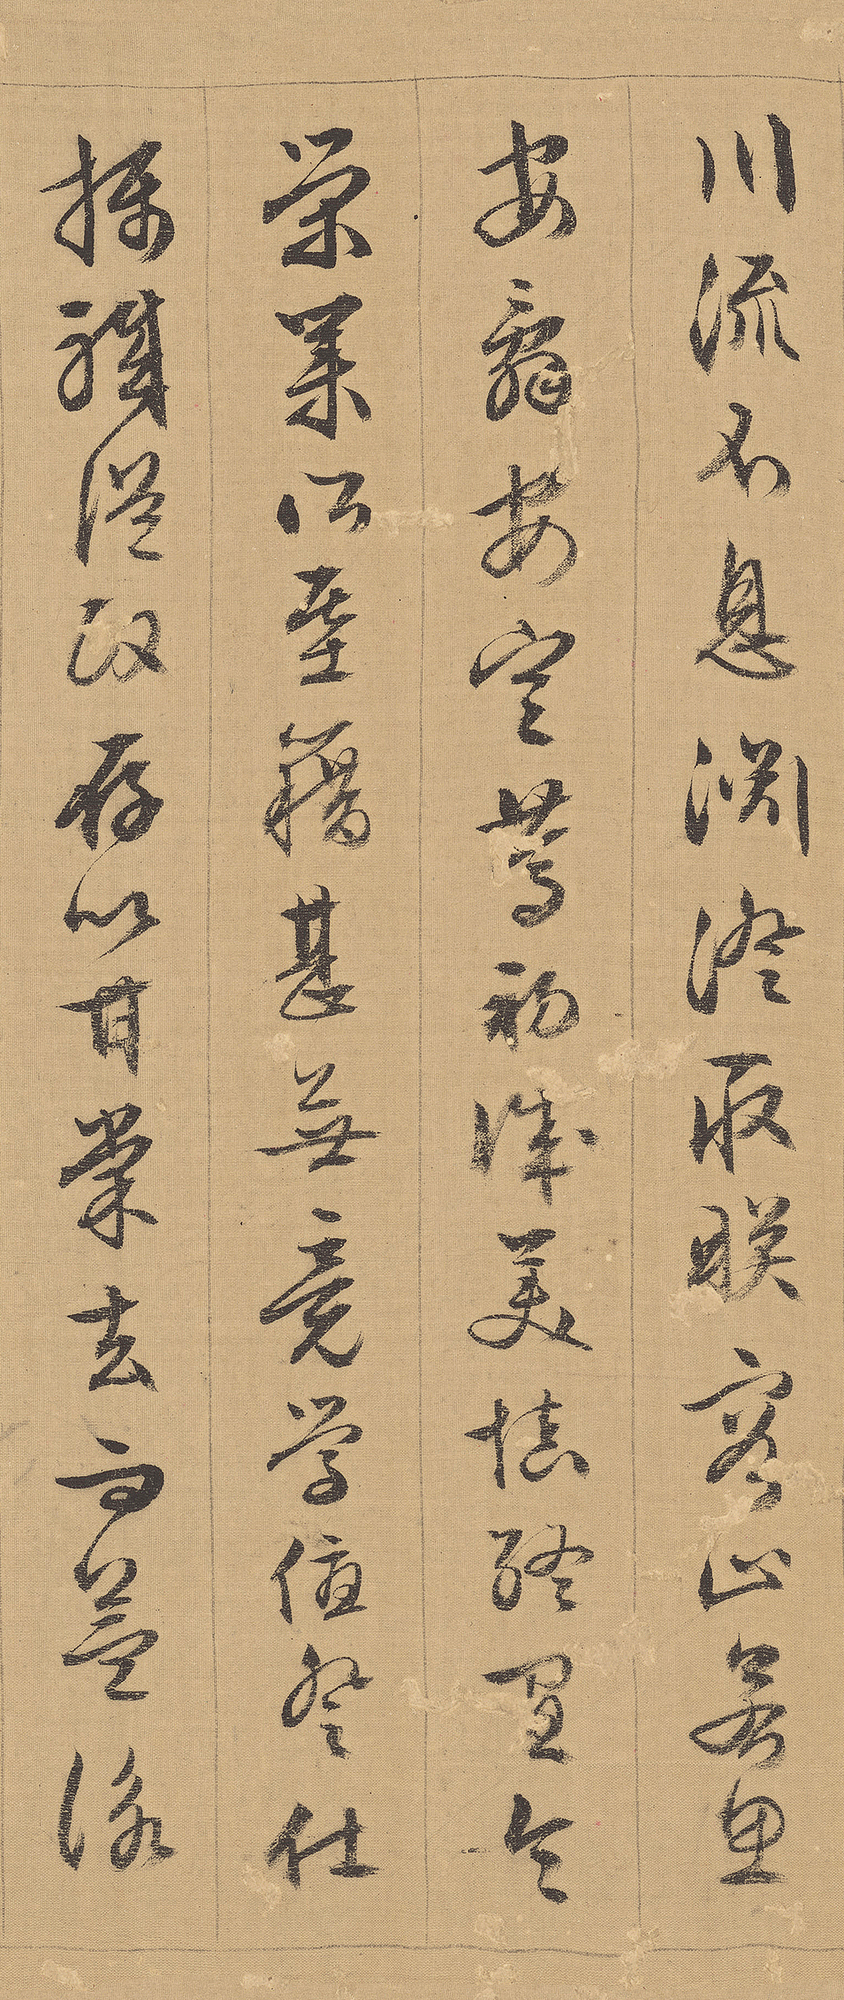 川流不息淵澄取映容止若思
安辭安定篤初誠美慎終宜令
榮業所基籍甚無竟學優登仕
攝職從政存以甘棠去而益詠